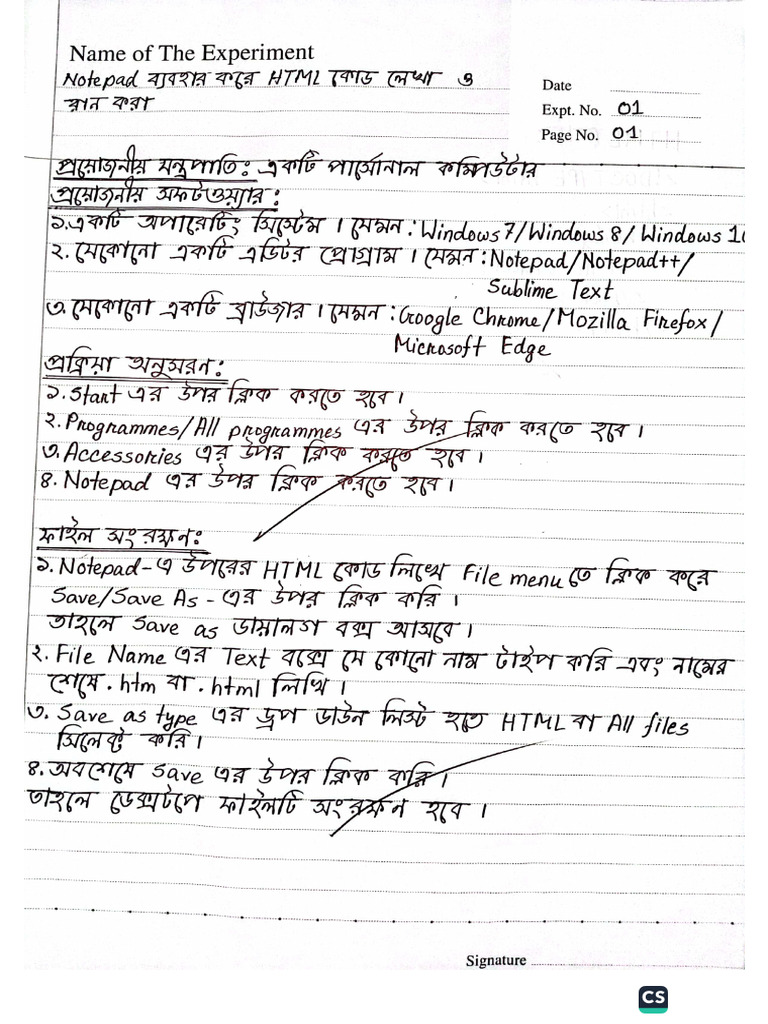 Name of The Experiment
Notepad ব্যবহার করে HTML কোড লেখা ও
রান করা
Date
Expt. No. 01
Page No. 01
প্রয়োজনীয় যন্ত্রপাতি: একটি পার্সোনাল কম্পিউটার
প্রয়োজনীয় সফটওয়্যার:
১. একটি অপারেটিং সিস্টেম। যেমন: Windows 7/Windows 8/ Windows 10
২. যেকোনো একটি এডিটর প্রোগ্রাম। যেমন: Notepad/Notepad++/
Sublime Text
৩. যেকোনো একটি ব্রাউজার। যেমন: Google Chrome/Mozilla Firefox/
Microsoft Edge
প্রক্রিয়া অনুসরন:
১. Start এর উপর ক্লিক করতে হবে।
২. Programmes/All programmes এর উপর ক্লিক করতে হবে।
৩. Accessories এর উপর ক্লিক করতে হবে।
৪. Notepad এর উপর ক্লিক করতে হবে।
ফাইল সংরক্ষন:
১. Notepad-এ উপরের HTML কোড লিখে File menu তে ক্লিক করে
Save/Save As - এর উপর ক্লিক করি।
তাহলে Save as ডায়ালগ বক্স আসবে।
২. File Name এর Text বক্সে যে কোনো নাম টাইপ করি এবং নামের
শেষে .htm বা .html লিখি।
৩. Save as type এর ড্রপ ডাউন লিস্ট হতে HTML বা All files
সিলেক্ট করি।
৪. অবশেষে Save এর উপর ক্লিক করি।
তাহলে ডেক্সটপে ফাইলটি সংরক্ষন হবে।
Signature
CS